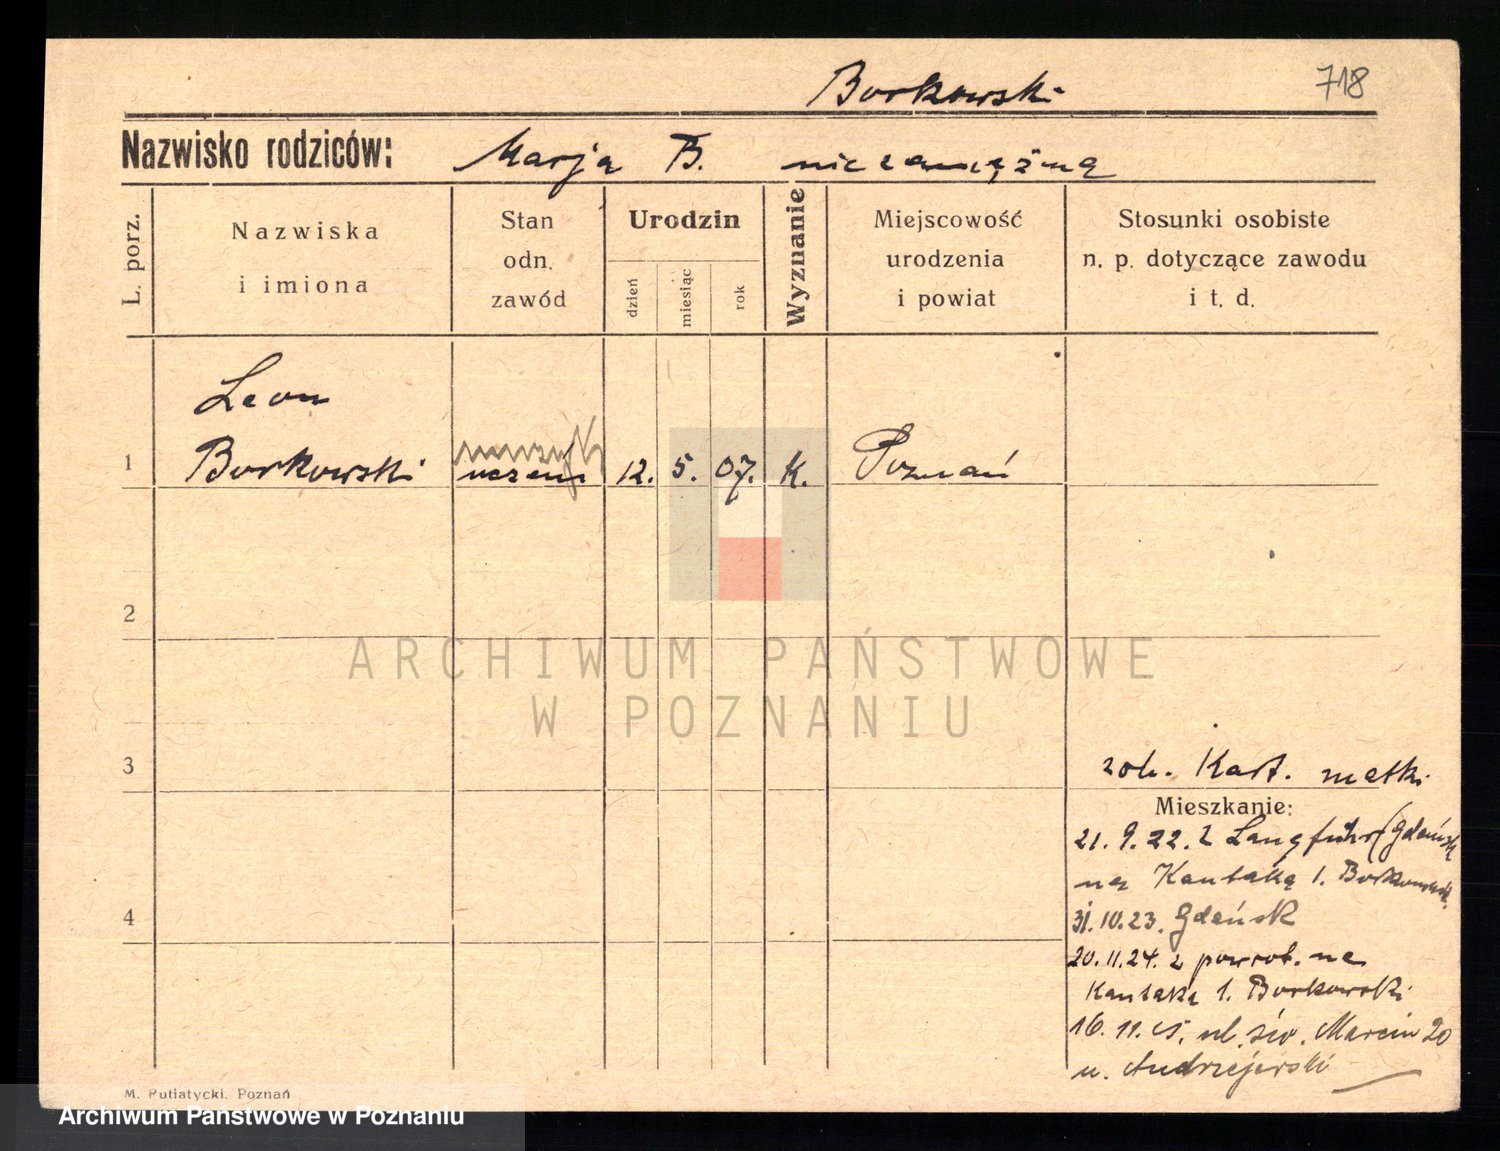 Borkowski 718
Nazwisko rodziców: Marja B. niezamężna
L. porz.
Nazwiska
i imiona
Stan
odn.
zawód
Urodzin
dzień
miesiąc
rok
Wyznanie
Miejscowość
urodzenia
i powiat
Stosunki osobiste
n. p. dotyczące zawodu
i t. d.
Leon
1 Borkowski uczeń 12. 5. 07. K. Poznań
2
ARCHIWUM PAŃSTWOWE
W POZNANIU
3 zob. Kart. matki
Mieszkanie:
21. 9. 22. z Langfuhr (Gdańsk
na Kantaka 1. Borkowski
4 31. 10. 23. Gdańsk
20. 11. 24. z powrot. na
Kantaka 1. Borkowski
16. 11. 25. ul. św. Marcin 20
u. Andrzejewski
M. Putiatycki. Poznań
Archiwum Państwowe w Poznaniu